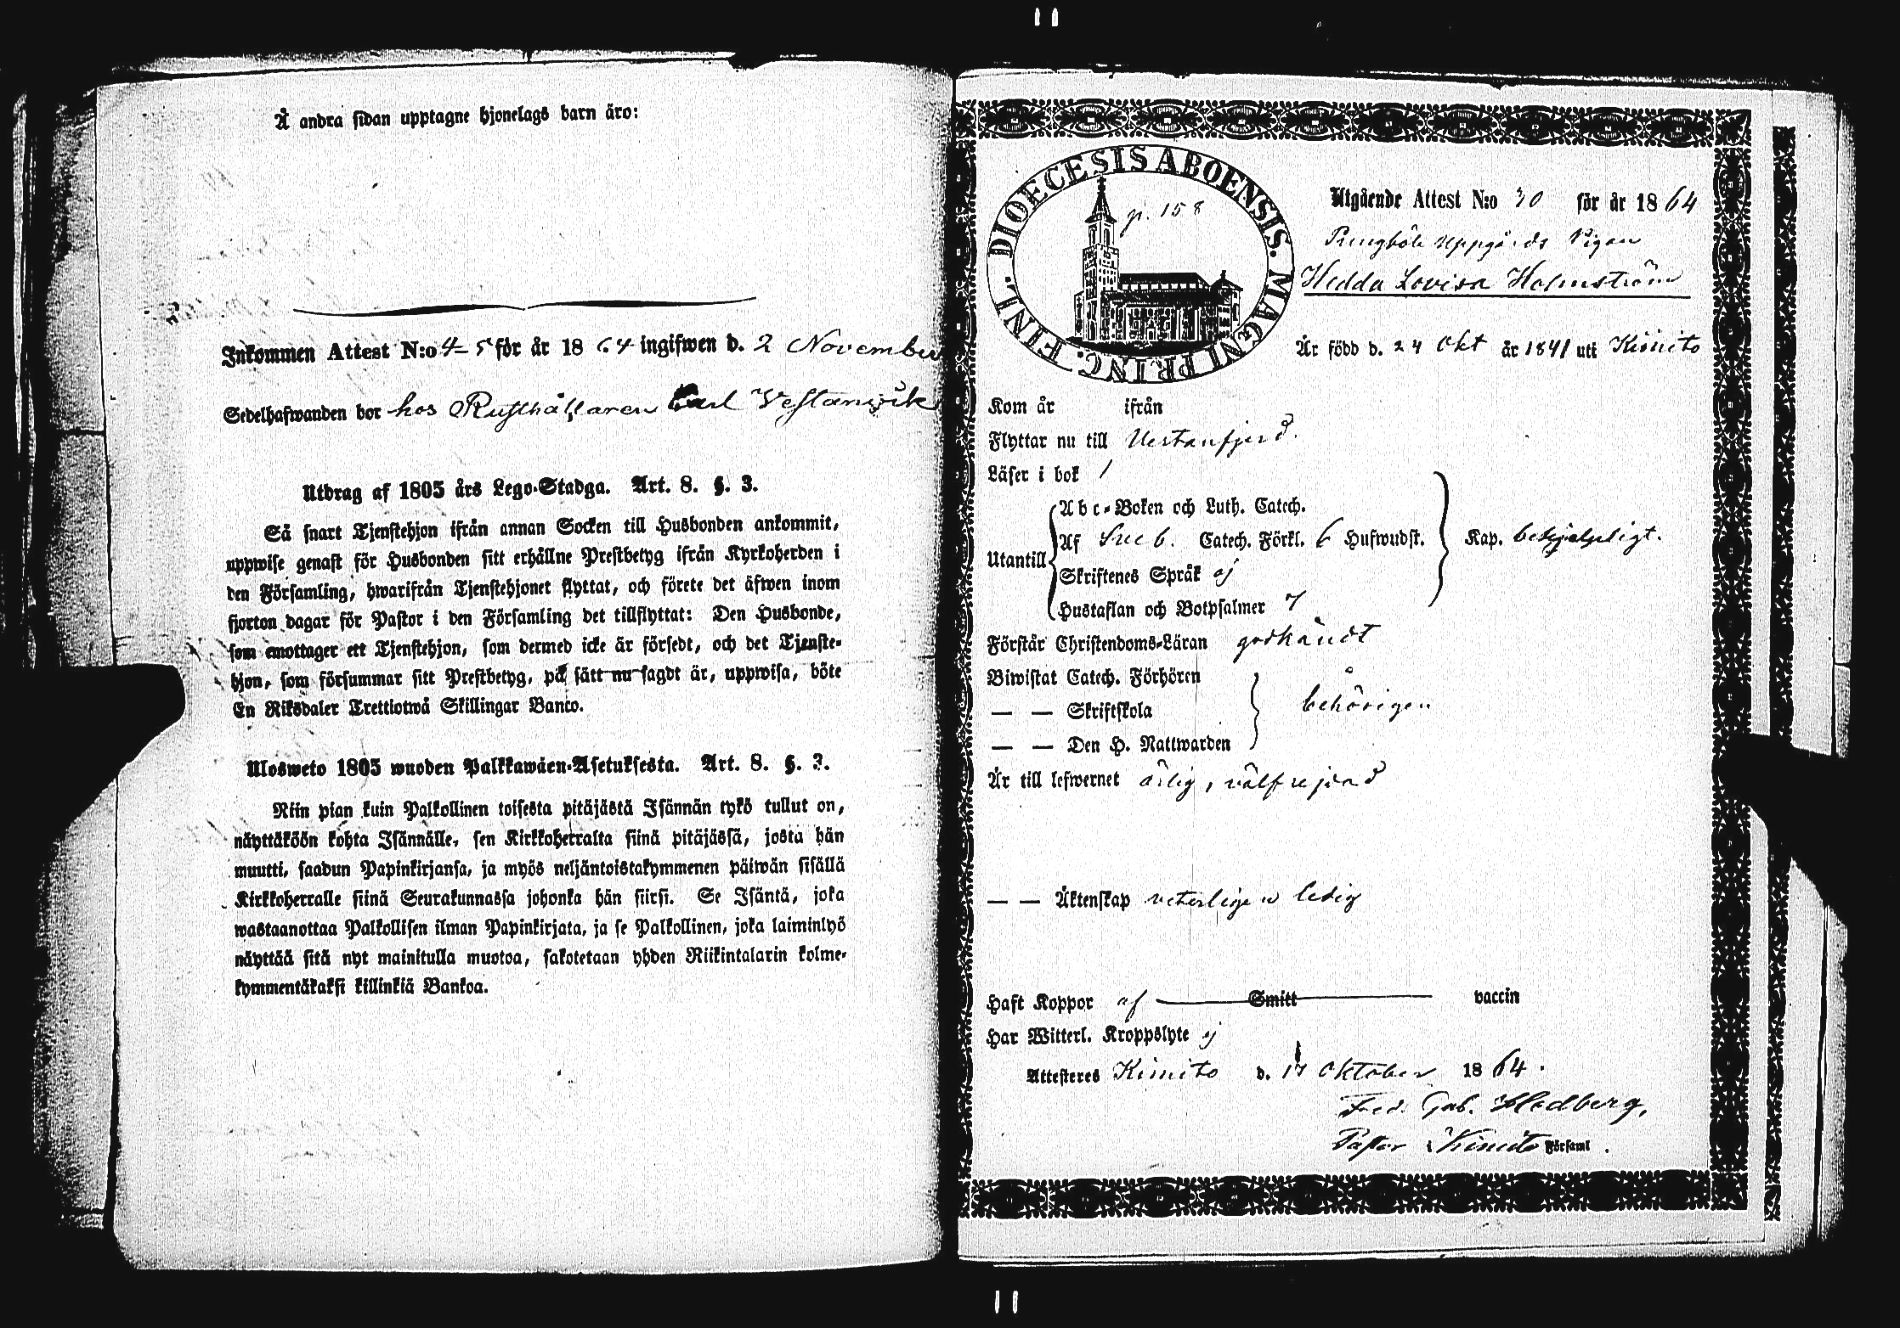 Å andra sidan upptagne hjonelags barn äro:
Inkommen Attest N:o 45 för år 1864 ingifwen d. 2 November
Sedelhafwanden bor hos Rusthållaren Carl Vestanvik
Utdrag af 1805 års Lego-Stadga. Art. 8. §. 3.
Så snart Tjenstehjon ifrån annan Socken till Husbonden ankommit,
uppwise genast för Husbonden sitt erhållne Prestbetyg ifrån Kyrkoherden i
den Församling, hwarifrån Tjenstehjonet flyttat, och förete det äfwen inom
fjorton dagar för Pastor i den Församling det tillflyttat: Den Husbonde,
som emottager ett Tjenstehjon, som dermed icke är försedt, och det Tjenste-
hjon, som försummar sitt Prestbetyg, på sätt nu sagdt är, uppwisa, böte
En Riksdaler Trettiotwå Skillingar Banco.
Ulosweto 1805 wuoden Palkkawäen-Asetuksesta. Art. 8. §. 3.
Niin pian kuin Palkollinen toisesta pitäjästä Isännän tykö tullut on,
näyttäköön kohta Isännälle, sen Kirkkoherralta siinä pitäjässä, josta hän
muutti, saadun Papinkirjansa, ja myös neljäntoistakymmenen päiwän sisällä
Kirkkoherralle siinä Seurakunnassa johonka hän siirsi. Se Isäntä, joka
wastaanottaa Palkollisen ilman Papinkirjata, ja se Palkollinen, joka laiminlyö
näyttää sitä nyt mainitulla muotoa, sakotetaan yhden Riikintalarin kolme-
kymmentäkaksi killinkiä Bankoa.
FINL. DIOECESIS ABOENSIS. MAGNI PRINC.
p. 158
Utgående Attest N:o 30 för år 1864
Uppgårds Pigan
Hedda Lovisa Holmström
Är född d. 24 Okt år 1841 uti Kimito
Kom år ifrån
Flyttar nu till Vestanfjerd.
Läser i bok 1
Utantill
Abc-Boken och Luth. Catech.
Af Sveb. Catech. Förkl. 6 Hufwudst. Kap. behjelpligt.
Skriftenes Språk ej
Hustaflan och Botpsalmer 7
Förstår Christendoms-Läran godkändt
Biwistat Catech. Förhören
— — Skriftskola behörigen
— — Den H. Nattwarden
Är till lefwernet ärlig, välfrejdad
— — Äktenskap veterligen ledig
Haft Koppor af Smitt vaccin
Har Witterl. Kroppslyte ej
Attesteres Kimito d. 17 Oktober 1864.
Fred. Gab. Hedberg,
Pastor i Kimito Församl.